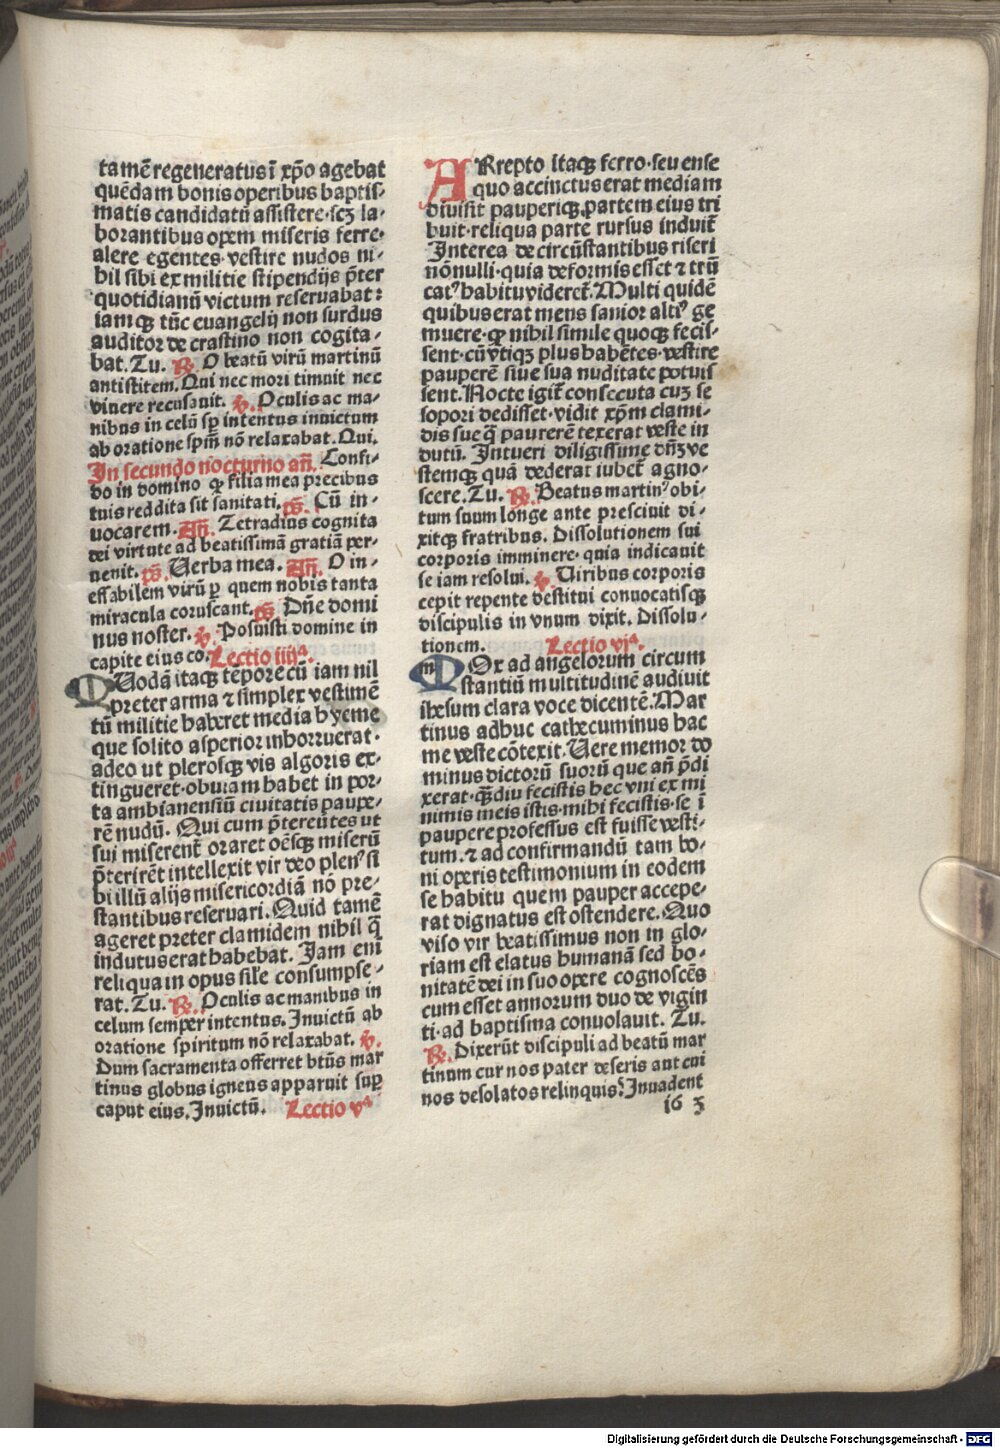 tamē regeneratus ī xp̄o agebat
quēdam bonis operibus baptis⸗
matis candidatū assistere·scꝫ la⸗
borantibus opem miseris ferre·
alere egentes·vestire nudos ni⸗
hil sibi ex militie stipendijs p̄ter
quotidianū victum reseruabat:
iamqꝫ tūc euangelij non surdus
auditor de crastino non cogita⸗
bat. Tu. ℟. O beatū virū martinū
antistitem. Qui nec mori timuit nec
viuere recusauit. ℣. Oculis ac ma⸗
nibus in celū sp̄ intentus inuictum
ab oratione spm̄ nō relaxabat. Qui.
In secundo nocturno an̄. Confi⸗
do in domino ꝙ filia mea precibus
tuis reddita sit sanitati. p̄s. Cū in⸗
uocarem. An̄. Tetradius cognita
dei virtute ad beatissimā gratiā per⸗
uenit. p̄s. Uerba mea. An̄. O in⸗
effabilem virū ꝑ quem nobis tanta
miracula coruscant. p̄s. Dn̄e domi
nus noster. ℣. Posuisti domine in
capite eius co. Lectio iiijᵃ.
QUodā itaqꝫ tēpore cū iam nil
preter arma ⁊ simplex vestimē
tū militie haberet media hyeme
que solito asperior inhorruerat·
adeo ut plerosqꝫ vis algoris ex⸗
tingueret·obuiam habet in por⸗
ta ambianensiū ciuitatis paupe⸗
rē nudū. Qui cum p̄tereūtes ut
sui miserent̄ oraret oēsqꝫ miserū
p̄terirēt intellexit vir deo plen⁹ si
bi illū alijs misericordiā nō pre⸗
stantibus reseruari. Quid tamē
ageret preter clamidem nihil q̄
indutus erat habebat. Jam eni
reliqua in opus sil̄e consumpse⸗
rat. Tu. ℟. Oculis ac manibus in
celum semper intentus. Inuictū ab
oratione spiritum nō relaxabat. ℣.
Dum sacramenta offerret btūs mar
tinus globus igneus apparuit suꝑ
caput eius. Inuictū. Lectio vᵃ
ARrepto itaqꝫ ferro·seu ense
quo accinctus erat mediam
diuisit pauperiqꝫ partem eius tri
buit·reliqua parte rursus induit̄
Interea de circūstantibus riseri
nōnulli·quia deformis esset ⁊ trū
cat⁹ habitu videret̄. Multi quidē
quibus erat mens sanior alti⁹ ge
muere·ꝙ nihil simile quoqꝫ fecis⸗
sent·cū vtiqꝫ plus habētes·vestire
pauperē siue sua nuditate potuis
sent. Nocte igit̄ consecuta cuꝫ se
sopori dedisset·vidit xp̄m clami⸗
dis sue q̄ paurerē texerat veste in
dutū. Intueri diligissime dn̄ꝫ ve
stemqꝫ quā dederat iubet̄ agno⸗
scere. Tu. ℟. Beatus martin⁹ obi⸗
tum suum longe ante presciuit di⸗
xitqꝫ fratribus. Dissolutionem sui
corporis imminere·quia indicauit
se iam resolui. ℣. Uiribus corporis
cepit repente destitui conuocatisqꝫ
discipulis in vnum dixit. Dissolu⸗
tionem. Lectio vjᵃ.
MOx ad angelorum circum
stantiū multitudinē audiuit
ihesum clara voce dicentē. Mar
tinus adhuc cathecuminus hac
me veste cōtexit. Uere memor do
minus dictorū suorū que an̄ p̄di
xerat·qꝫdiu fecistis hec vni ex mi
nimis meis istis·mihi fecistis·se ī
paupere professus est fuisse vesti⸗
tum.⁊ ad confirmandū tam bo⸗
ni operis testimonium in eodem
se habitu quem pauper accepe⸗
rat dignatus est ostendere. Quo
viso vir beatissimus non in glo⸗
riam est elatus humanā sed bo⸗
nitatē dei in suo opere cognoscēs
cum esset annorum duo de vigin
ti·ad baptisma conuolauit. Tu.
℟. Dixerūt discipuli ad beatū mar
tinum cur nos pater deseris aut cui
nos desolatos relinquis? Inuadent
i6 3
Digitalisierung gefördert durch die Deutsche Forschungsgemeinschaft - DFG